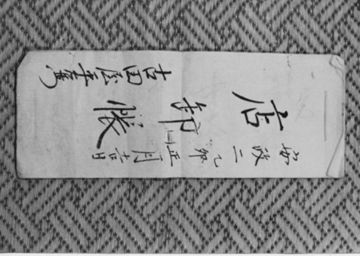 安政二乙卯正月吉日
店卸帳
吉田屋